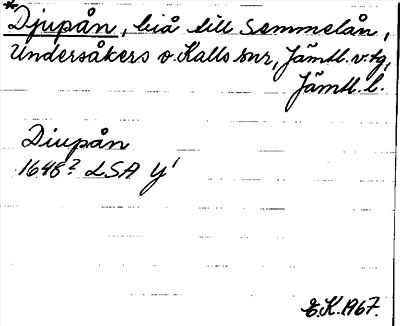 *Djupån, biå till Semmelån,
Undersåkers o. Kalls snr, Jämtl. v. tg,
Jämtl. l.
Diupån
1648? LSA Y 1
E.K. 1967.